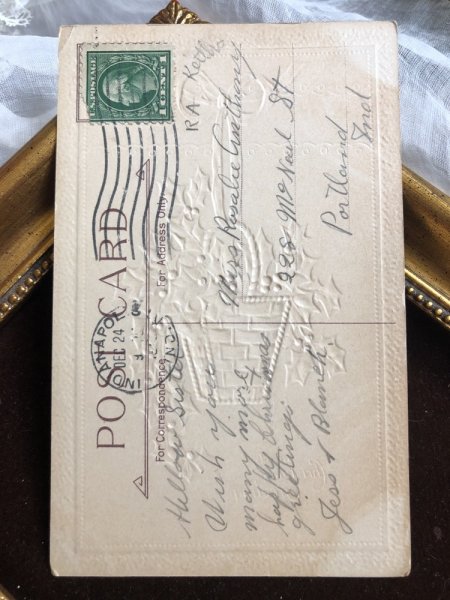 U.S. POSTAGE
1 CENT 1
RA Koth
DEC 24
IND.
POST CARD
For Correspondence.
For Address Only.
Hello Sister
Wish you
many more
happy Christmas
greetings
Jess & Blanch.
Miss Rosalie Anthony
228 McNeal St
Portland
Ind